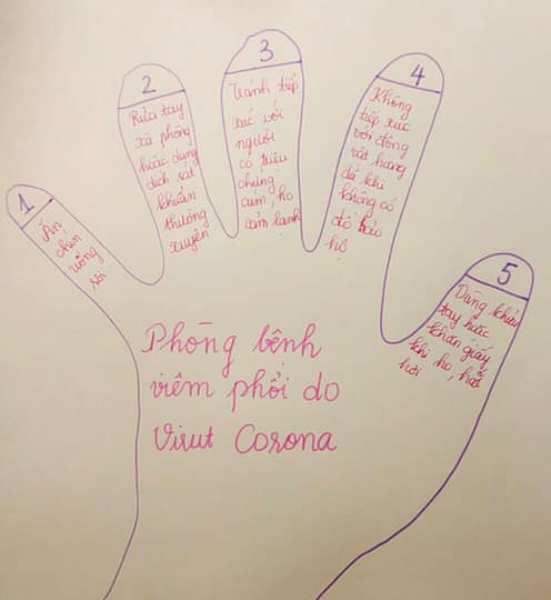 1
Ăn
chín
uống
sôi
2
Rửa tay
xà phòng
hoặc dung
dịch sát
khuẩn
thường
xuyên
3
Tránh tiếp
xúc với
người
có triệu
chứng
cúm, ho
cảm lạnh
4
Không
tiếp xúc
với động
vật hoang
dã khi
không có
đồ bảo
hộ
5
Dùng khăn
tay hoặc
khăn giấy
khi ho, hắt
hơi
Phòng bệnh
viêm phổi do
Virut Corona